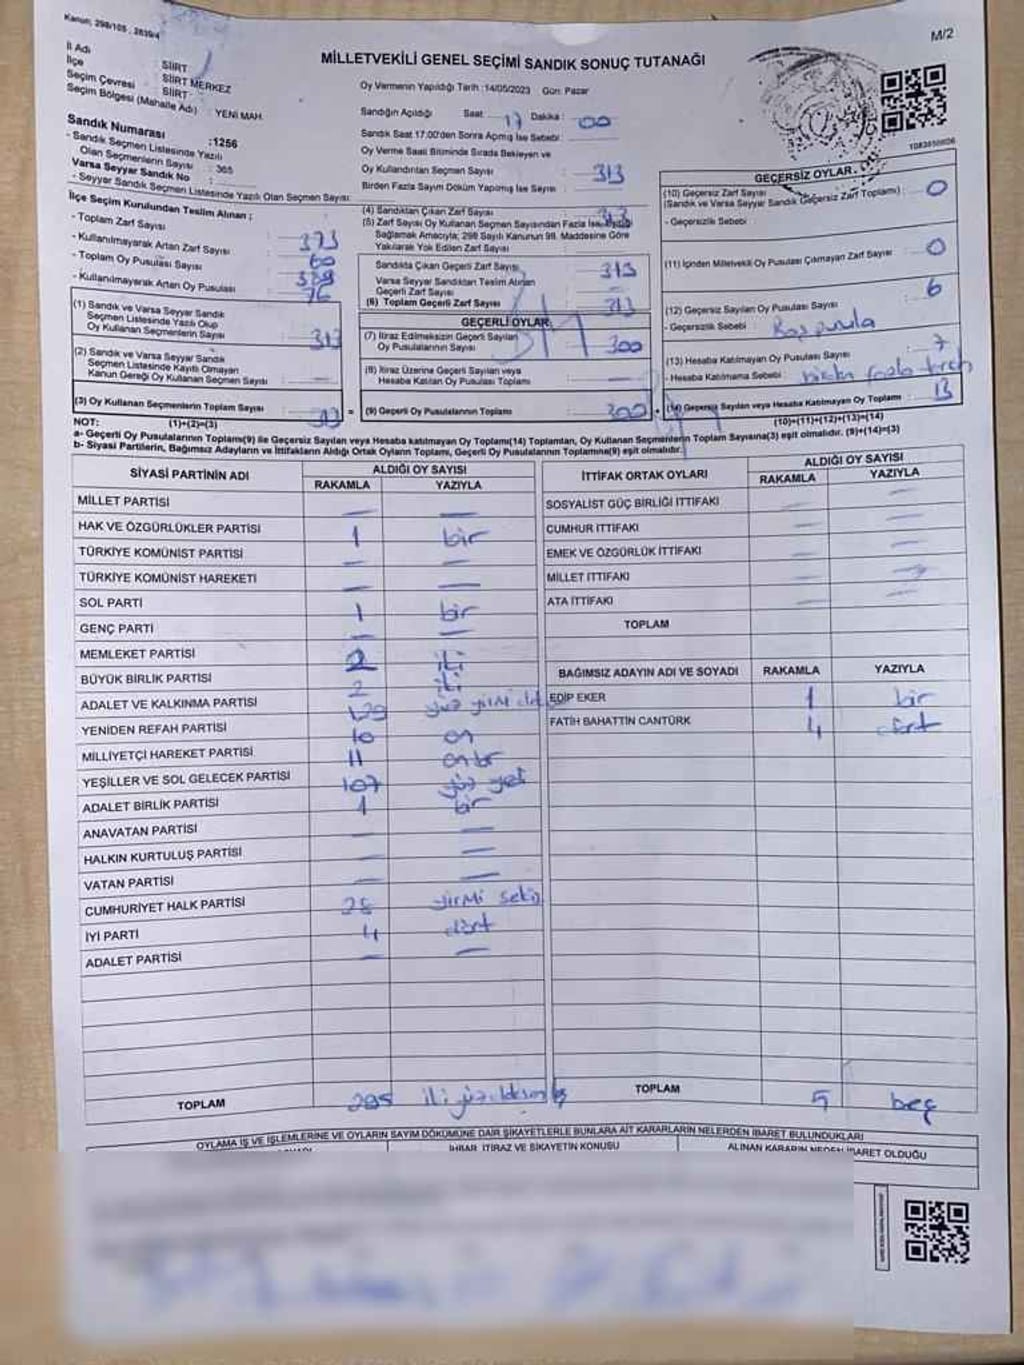 Kanun; 298/105 , 2839/4
M/2
MİLLETVEKİLİ GENEL SEÇİMİ SANDIK SONUÇ TUTANAĞI
İl Adı : SİİRT
İlçe : SİİRT MERKEZ
Seçim Çevresi : SİİRT
Seçim Bölgesi (Mahalle Adı) : YENİ MAH.
Sandık Numarası :1256
- Sandık Seçmen Listesinde Yazılı
Olan Seçmenlerin Sayısı : 365
Varsa Seyyar Sandık No :
- Seyyar Sandık Seçmen Listesinde Yazılı Olan Seçmen Sayısı:
Oy Vermenin Yapıldığı Tarih :14/05/2023 Gün: Pazar
Sandığın Açıldığı Saat : 17 Dakika : 00
Sandık Saat 17.00'den Sonra Açılmış İse Sebebi:
Oy Verme Saati Bitiminde Sırada Bekleyen ve
Oy Kullandırılan Seçmen Sayısı : 313
Birden Fazla Sayım Döküm Yapılmış İse Sayısı :
İlçe Seçim Kurulundan Teslim Alınan ;
- Toplam Zarf Sayısı : 373
- Kullanılmayarak Artan Zarf Sayısı : 60
- Toplam Oy Pusulası Sayısı : 389
- Kullanılmayarak Artan Oy Pusulası : 76
(1) Sandık ve Varsa Seyyar Sandık
Seçmen Listesinde Yazılı Olup
Oy Kullanan Seçmenlerin Sayısı : 313
(2) Sandık ve Varsa Seyyar Sandık
Seçmen Listesinde Kayıtlı Olmayan
Kanun Gereği Oy Kullanan Seçmen Sayısı : —
(3) Oy Kullanan Seçmenlerin Toplam Sayısı : 313
(1)+(2)=(3)
(4) Sandıktan Çıkan Zarf Sayısı : 313
(5) Zarf Sayısı Oy Kullanan Seçmen Sayısından Fazla İse, Eşitliği
Sağlamak Amacıyla; 298 Sayılı Kanunun 98. Maddesine Göre
Yakılarak Yok Edilen Zarf Sayısı
Sandıkta Çıkan Geçerli Zarf Sayısı : 313
Varsa Seyyar Sandıktan Teslim Alınan
Geçerli Zarf Sayısı
(6) Toplam Geçerli Zarf Sayısı : 313
GEÇERLİ OYLAR
(7) İtiraz Edilmeksizin Geçerli Sayılan
Oy Pusulalarının Sayısı : 300
(8) İtiraz Üzerine Geçerli Sayılan veya
Hesaba Katılan Oy Pusulası Toplamı : —
(9) Geçerli Oy Pusulalarının Toplamı : 300
GEÇERSİZ OYLAR
(10) Geçersiz Zarf Sayısı
(Sandık ve Varsa Seyyar Sandık Geçersiz Zarf Toplamı) : 0
- Geçersizlik Sebebi :
(11) İçinden Milletvekili Oy Pusulası Çıkmayan Zarf Sayısı : 0
(12) Geçersiz Sayılan Oy Pusulası Sayısı : 6
- Geçersizlik Sebebi : Boş pusula
(13) Hesaba Katılmayan Oy Pusulası Sayısı : 7
- Hesaba Katılmama Sebebi : fazla tercih
(14) Geçersiz Sayılan veya Hesaba Katılmayan Oy Toplamı : 13
(10)+(11)+(12)+(13)=(14)
NOT:
a- Geçerli Oy Pusulalarının Toplamı(9) ile Geçersiz Sayılan veya Hesaba katılmayan Oy Toplamı(14) Toplamları, Oy Kullanan Seçmenlerin Toplam Sayısına(3) eşit olmalıdır. (9)+(14)=(3)
b- Siyasi Partilerin, Bağımsız Adayların ve İttifakların Aldığı Ortak Oyların Toplamı, Geçerli Oy Pusulalarının Toplamına(9) eşit olmalıdır.
SİYASİ PARTİNİN ADI ALDIĞI OY SAYISI
RAKAMLA YAZIYLA
MİLLET PARTİSİ — —
HAK VE ÖZGÜRLÜKLER PARTİSİ 1 bir
TÜRKİYE KOMÜNİST PARTİSİ — —
TÜRKİYE KOMÜNİST HAREKETİ — —
SOL PARTİ 1 bir
GENÇ PARTİ — —
MEMLEKET PARTİSİ 2 iki
BÜYÜK BİRLİK PARTİSİ 2 iki
ADALET VE KALKINMA PARTİSİ yüz yirmi
YENİDEN REFAH PARTİSİ 10 on
MİLLİYETÇİ HAREKET PARTİSİ 11 onbir
YEŞİLLER VE SOL GELECEK PARTİSİ 107 yüz yedi
ADALET BİRLİK PARTİSİ 1 bir
ANAVATAN PARTİSİ — —
HALKIN KURTULUŞ PARTİSİ — —
VATAN PARTİSİ — —
CUMHURİYET HALK PARTİSİ 28 yirmi sekiz
İYİ PARTİ 4 dört
ADALET PARTİSİ — —
TOPLAM 295 iki yüz doksan beş
İTTİFAK ORTAK OYLARI ALDIĞI OY SAYISI
RAKAMLA YAZIYLA
SOSYALİST GÜÇ BİRLİĞİ İTTİFAKI — —
CUMHUR İTTİFAKI — —
EMEK VE ÖZGÜRLÜK İTTİFAKI — —
MİLLET İTTİFAKI — —
ATA İTTİFAKI — —
TOPLAM
BAĞIMSIZ ADAYIN ADI VE SOYADI RAKAMLA YAZIYLA
EDİP EKER 1 bir
FATİH BAHATTİN CANTÜRK 4 dört
TOPLAM 5 beş
OYLAMA İŞ VE İŞLEMLERİNE VE OYLARIN SAYIM DÖKÜMÜNE DAİR ŞİKAYETLERLE BUNLARA AİT KARARLARIN NELERDEN İBARET BULUNDUKLARI
İHBAR, İTİRAZ VE ŞİKAYETİN KONUSU
ALINAN KARARIN NEDEN İBARET OLDUĞU